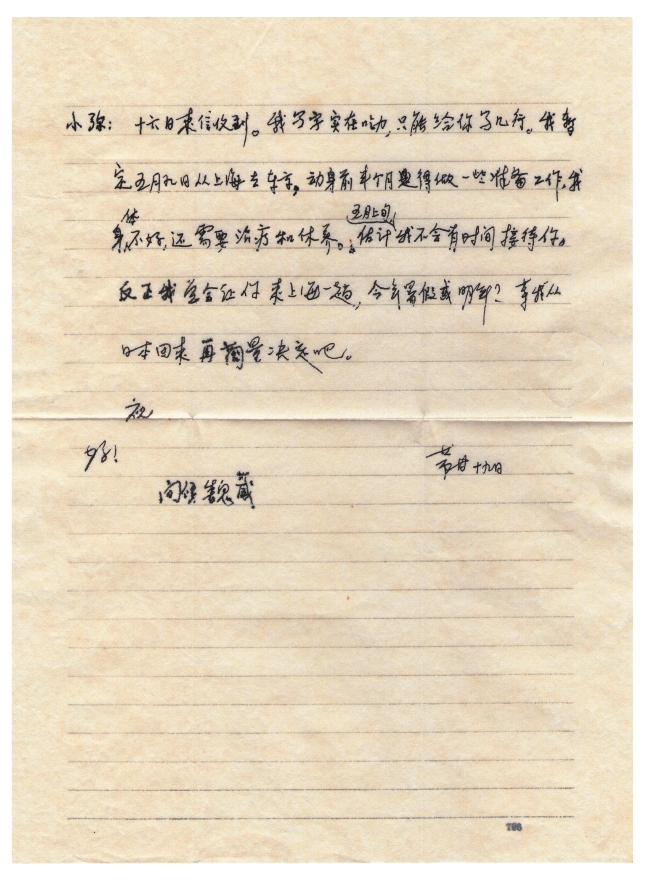 小弥：十六日来信收到。我写字实在吃力，只能给你写几行。我暂
定五月九日从上海去东京，动身前半个月总得做一些准备工作，我
身体不好，还需要治疗和休养。五月上旬估计我不会有时间接待你。
反正我总会让你来上海一趟，今年暑假或明年？等我从
日本回来再商量决定吧。
祝
好！
芾甘 十九日
问候
796